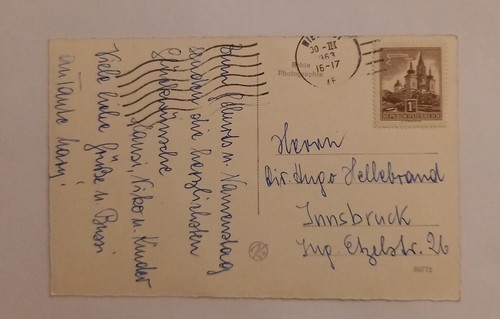 Zum Geburts u. Namenstag
senden die herzlichsten
Glückwünsche
Hansi, Niko u. Kinder
Viele liebe Grüße u. Bussi
an Tante Mary!
WIE
30-III
1963
16-17
Echte
Photographie
1S
REPUBLIK ÖSTERREICH
Herrn
Dir. Hugo Hellebrand
Innsbruck
Ing. Etzelstr. 26